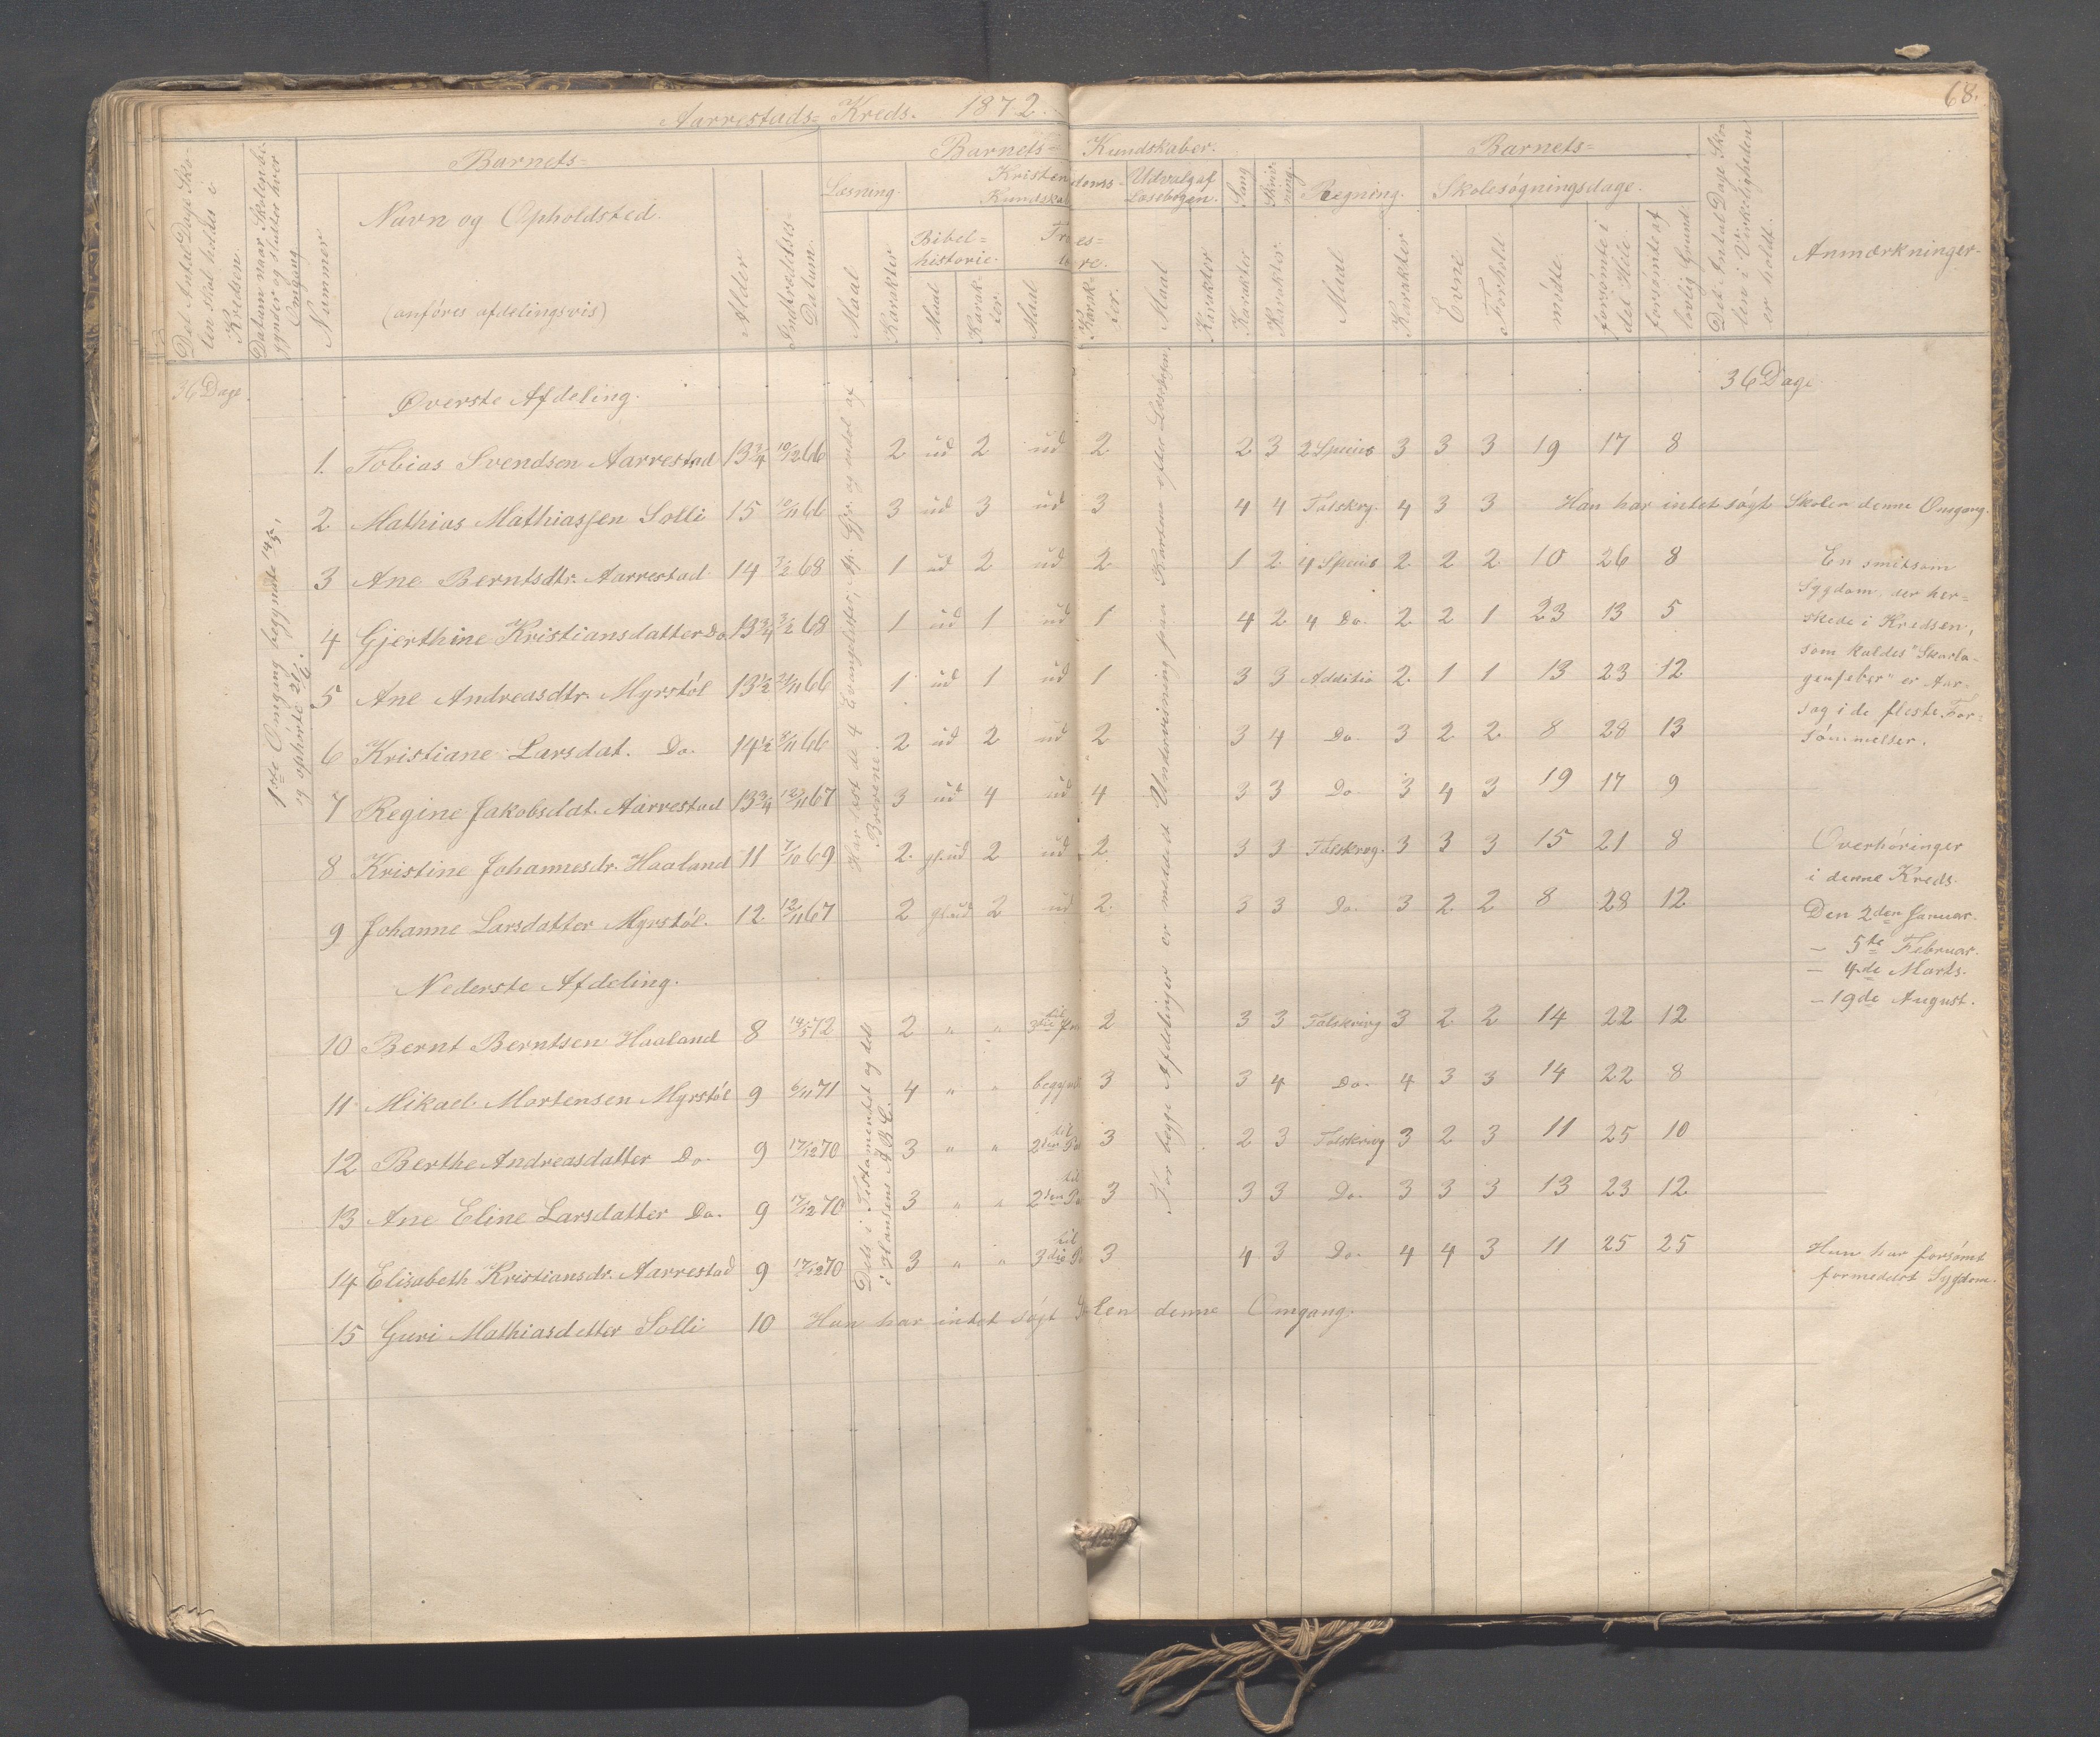 68.
Aarrestads= Kreds. 1872.
Det Antal Dage Skolen skal holdes i Kredsen.
Datum naar Skolen begynder og slutter hver Omgang
Nummer
Barnets=
Navn og Opholdsted.
(anføres afdelingsvis)
Alder
Indtrædelses= Datum.
Barnets= Kundskaber.
Læsning.
Maal
Karakter
Kristendoms= Kundskab
Bibel=historie.
Maal
Karak-ter.
Troes=lære.
Maal
Karak-ter.
Udvalg af Læsebogen.
Maal
Karakter
Sang
Karakter
Skriv-ning.
Karakter.
Regning.
Maal
Karakter
Barnets=
Skolesøgningsdage.
Evne
Forhold.
mødte
forsømte i det Hele.
forsømte af lovlig Grund.
Det Antal Dage Skolen i Virkeligheden er holdt.
Anmærkninger.
36 Dage
1ste Omgang begyndte 14/5,
og ophørte 27/6.
Øverste Afdeling.
36 Dage.
1. Tobias Svendsen Aarrestad 13 3/4 10/12 66 2 ud 2 ud 2 2 3 2 Species 3 3 3 19 17 8
2 Mathias Mathiassen Solli 15 10/11 66 3 ud 3 ud 3 4 4 Talskrg. 4 3 3 Han har intet søgt Skolen denne Omgang.
3 Ane Berntsdtr. Aarrestad 14 7/2 68 1 ud 2 ud 2 1 2 4 Species 2 2 2 10 26 8
4 Gjerthine Kristiansdatter Do 13 3/4 3/2 68 1 ud 1 ud 1 4 2 4 Do. 2 2 1 23 13 5
5 Ane Andreasdtr. Myrstøl 13 1/2 21/11 66 1 ud 1 ud 1 3 3 Additio 2 1 1 13 23 12
6 Kristiane Larsdat. Do. 14 1/2 8/11 66 2 ud 2 ud 2 3 4 Do. 3 2 2 8 28 13
7 Regine Jakobsdat. Aarrestad 13 3/4 12/11 67 3 ud 4 ud 4 3 3 Do. 3 4 3 19 17 9
8 Kristine Johannesdr. Haaland 11 7/10 69 2 gl.ud 2 ud 2 3 3 Talskrvg. 3 3 3 15 21 8
9 Johanne Larsdatter Myrstøl. 12 12/11 67 2 gl.ud 2 ud 2 3 3 Do. 3 2 2 8 28 12
Har læst de 4 Evangelister, Ap. Gjr. og endel af Brevene.
For begge Afdelinger er meddelt Undervisning paa Karterne efter Læsebogen,
En smitsom
Sygdom, der her=
skede i Kredsen,
som kaldes "Skarla-
gensfeber" er Aar=
sag i de fleste For=
sømmelser.
Overhøringer
i denne Kreds.
Den 2den Januar.
— 5te Februar.
— 4de Marts.
— 19de August.
Nederste Afdeling.
10 Bernt Berntsen Haaland 8 14/5 72 2 " " til 3die 2 3 3 Talskrivg 3 2 2 14 22 12
11 Mikael Mortensen Myrstøl 9 6/11 71 4 " " begynd 3 3 4 Do. 4 3 3 14 22 8
12 Berthe Andreasdatter Do. 9 17/12 70 3 " " til 2den Pa 3 2 3 Talskrivg 3 2 3 11 25 10
13 Ane Eline Larsdatter Do. 9 17/12 70 3 " " til 2den Pa 3 3 3 Do. 3 3 3 13 23 12
14 Elisabeth Kristiansdr. Aarrestad 9 17/12 70 3 " " til 3die Pa 3 4 3 Do. 4 4 3 11 25 25
Hun har forsømt
formedelst Sygdom.
15 Guri Mathiasdatter Solli 10 Hun har intet søgt Skolen denne Omgang.
Dels i Testamentet og dels
i Hansens A.B.C.